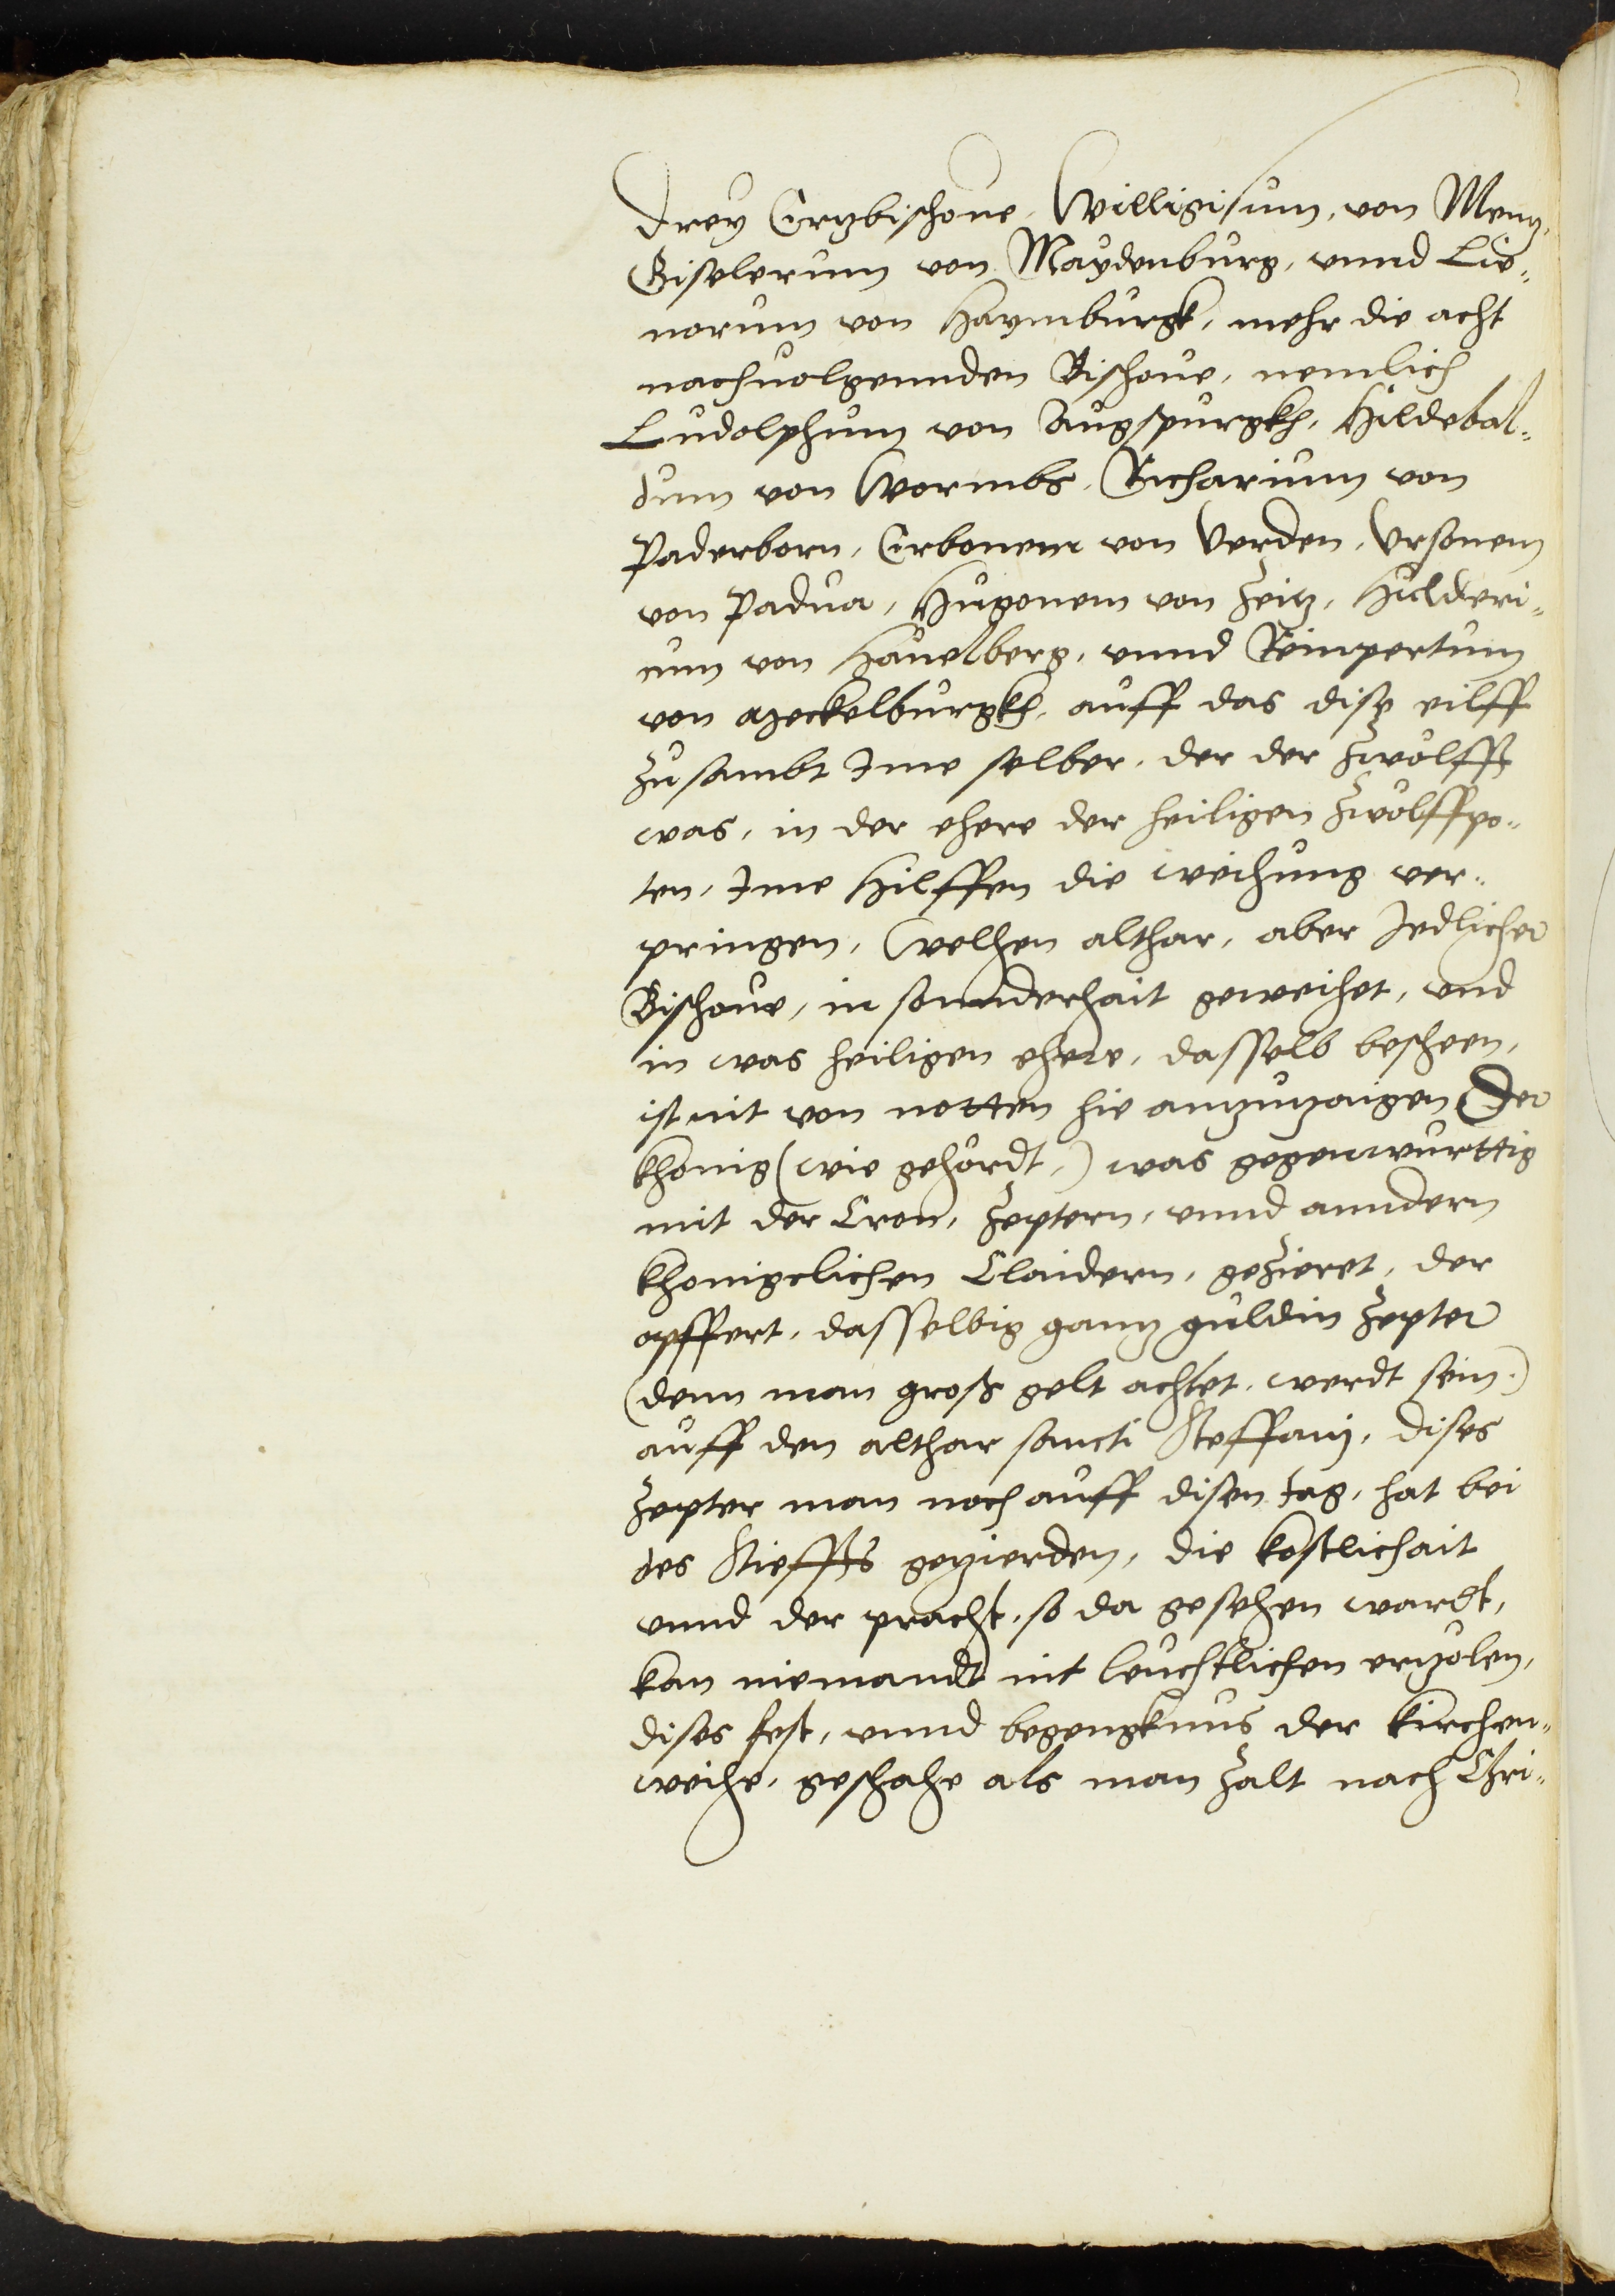 drey Ertzbischoue, Willigisum, von Mentz,
Giselerum von Maydenburg, vnnd Lie¬
norum von Haymburgk, mehr die acht
nachuolgennden Bischoue, nemlich
Ludolphum von Augspurgkh, Hildebal¬
dum von Wormbs, Richarium von
Paderborn, Erbonem von Verden, Vrsonem
von Padua, Hugonem von Zeitz, Hilderi¬
cum von Hauelberg, vnnd Reimpertum
von Meckelburgkh, auff das disz eilff
zu sambt Ime selber, der der zwölfft
was, in der ehere der heiligen zwölffpo¬
ten, Ime hilffen die weihung ver¬
pringen, Welhen althar, aber Jedlicher
Bischoue, in sonnderhait geweihet, vnd
in was heiligen ehere, dasselb bescheen,
ist nit von notten hie antzutzaigen Der
khonig (wie gehördt,) was gegenwurttig
mit der Cron, Zeptern, vnnd anndern
khonigclichen Claidern, gezieret, der
opffert, dasselbig gantz guldin Zepter
(denn man gross gelt achtet, werdt sein.)
auff den althar sancti Steffanj, dises
Zepter man noch auff disen tag, hat bei
des Stieffts getzierden, die kostlichait
vnnd der pracht, so da gesehen wardt,
kan niemandt nit leuchtlichen ertzolen,
dises fest, vnnd begengknus der kirchen¬
weihe, geschahe als man zalt nach Chri¬